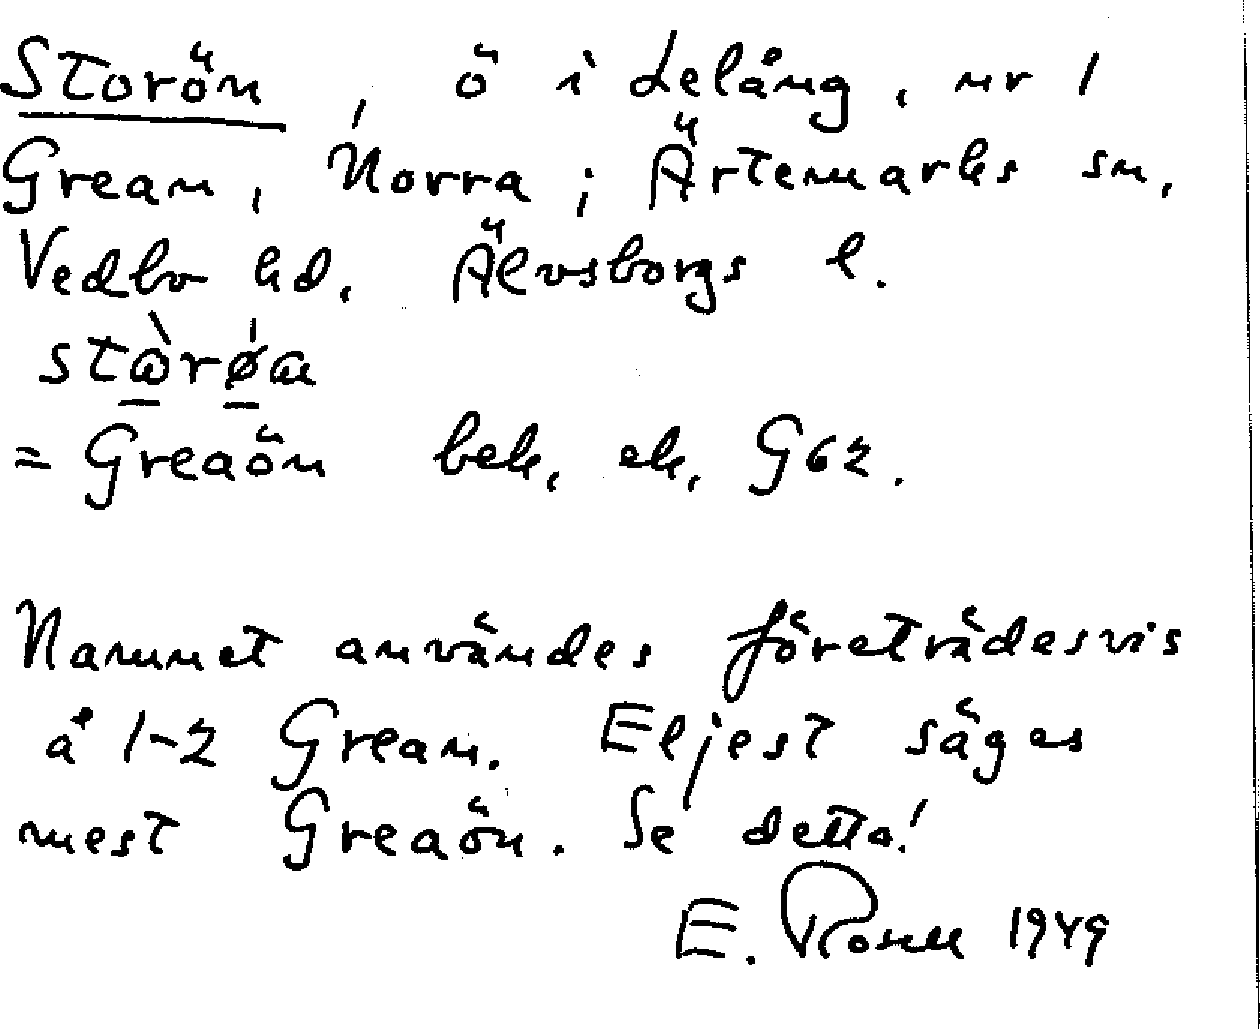 Storön, ö i Lelång, nr 1
Grean, Norra; Ärtemarks sn,
Vedbo hd, Älvsborgs l.
= Greaön bek, ek, G62.
Namnet användes företrädesvis
å 1-2 Grean. Eljest säges
mest Greaön. Se detta!
E. Rosell 1949